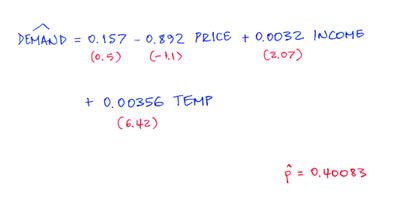 DEMAND^ = 0.157 - 0.892 PRICE + 0.0032 INCOME
(0.5) (-1.1) (2.07)
+ 0.00356 TEMP
(6.42)
p̂ = 0.40083